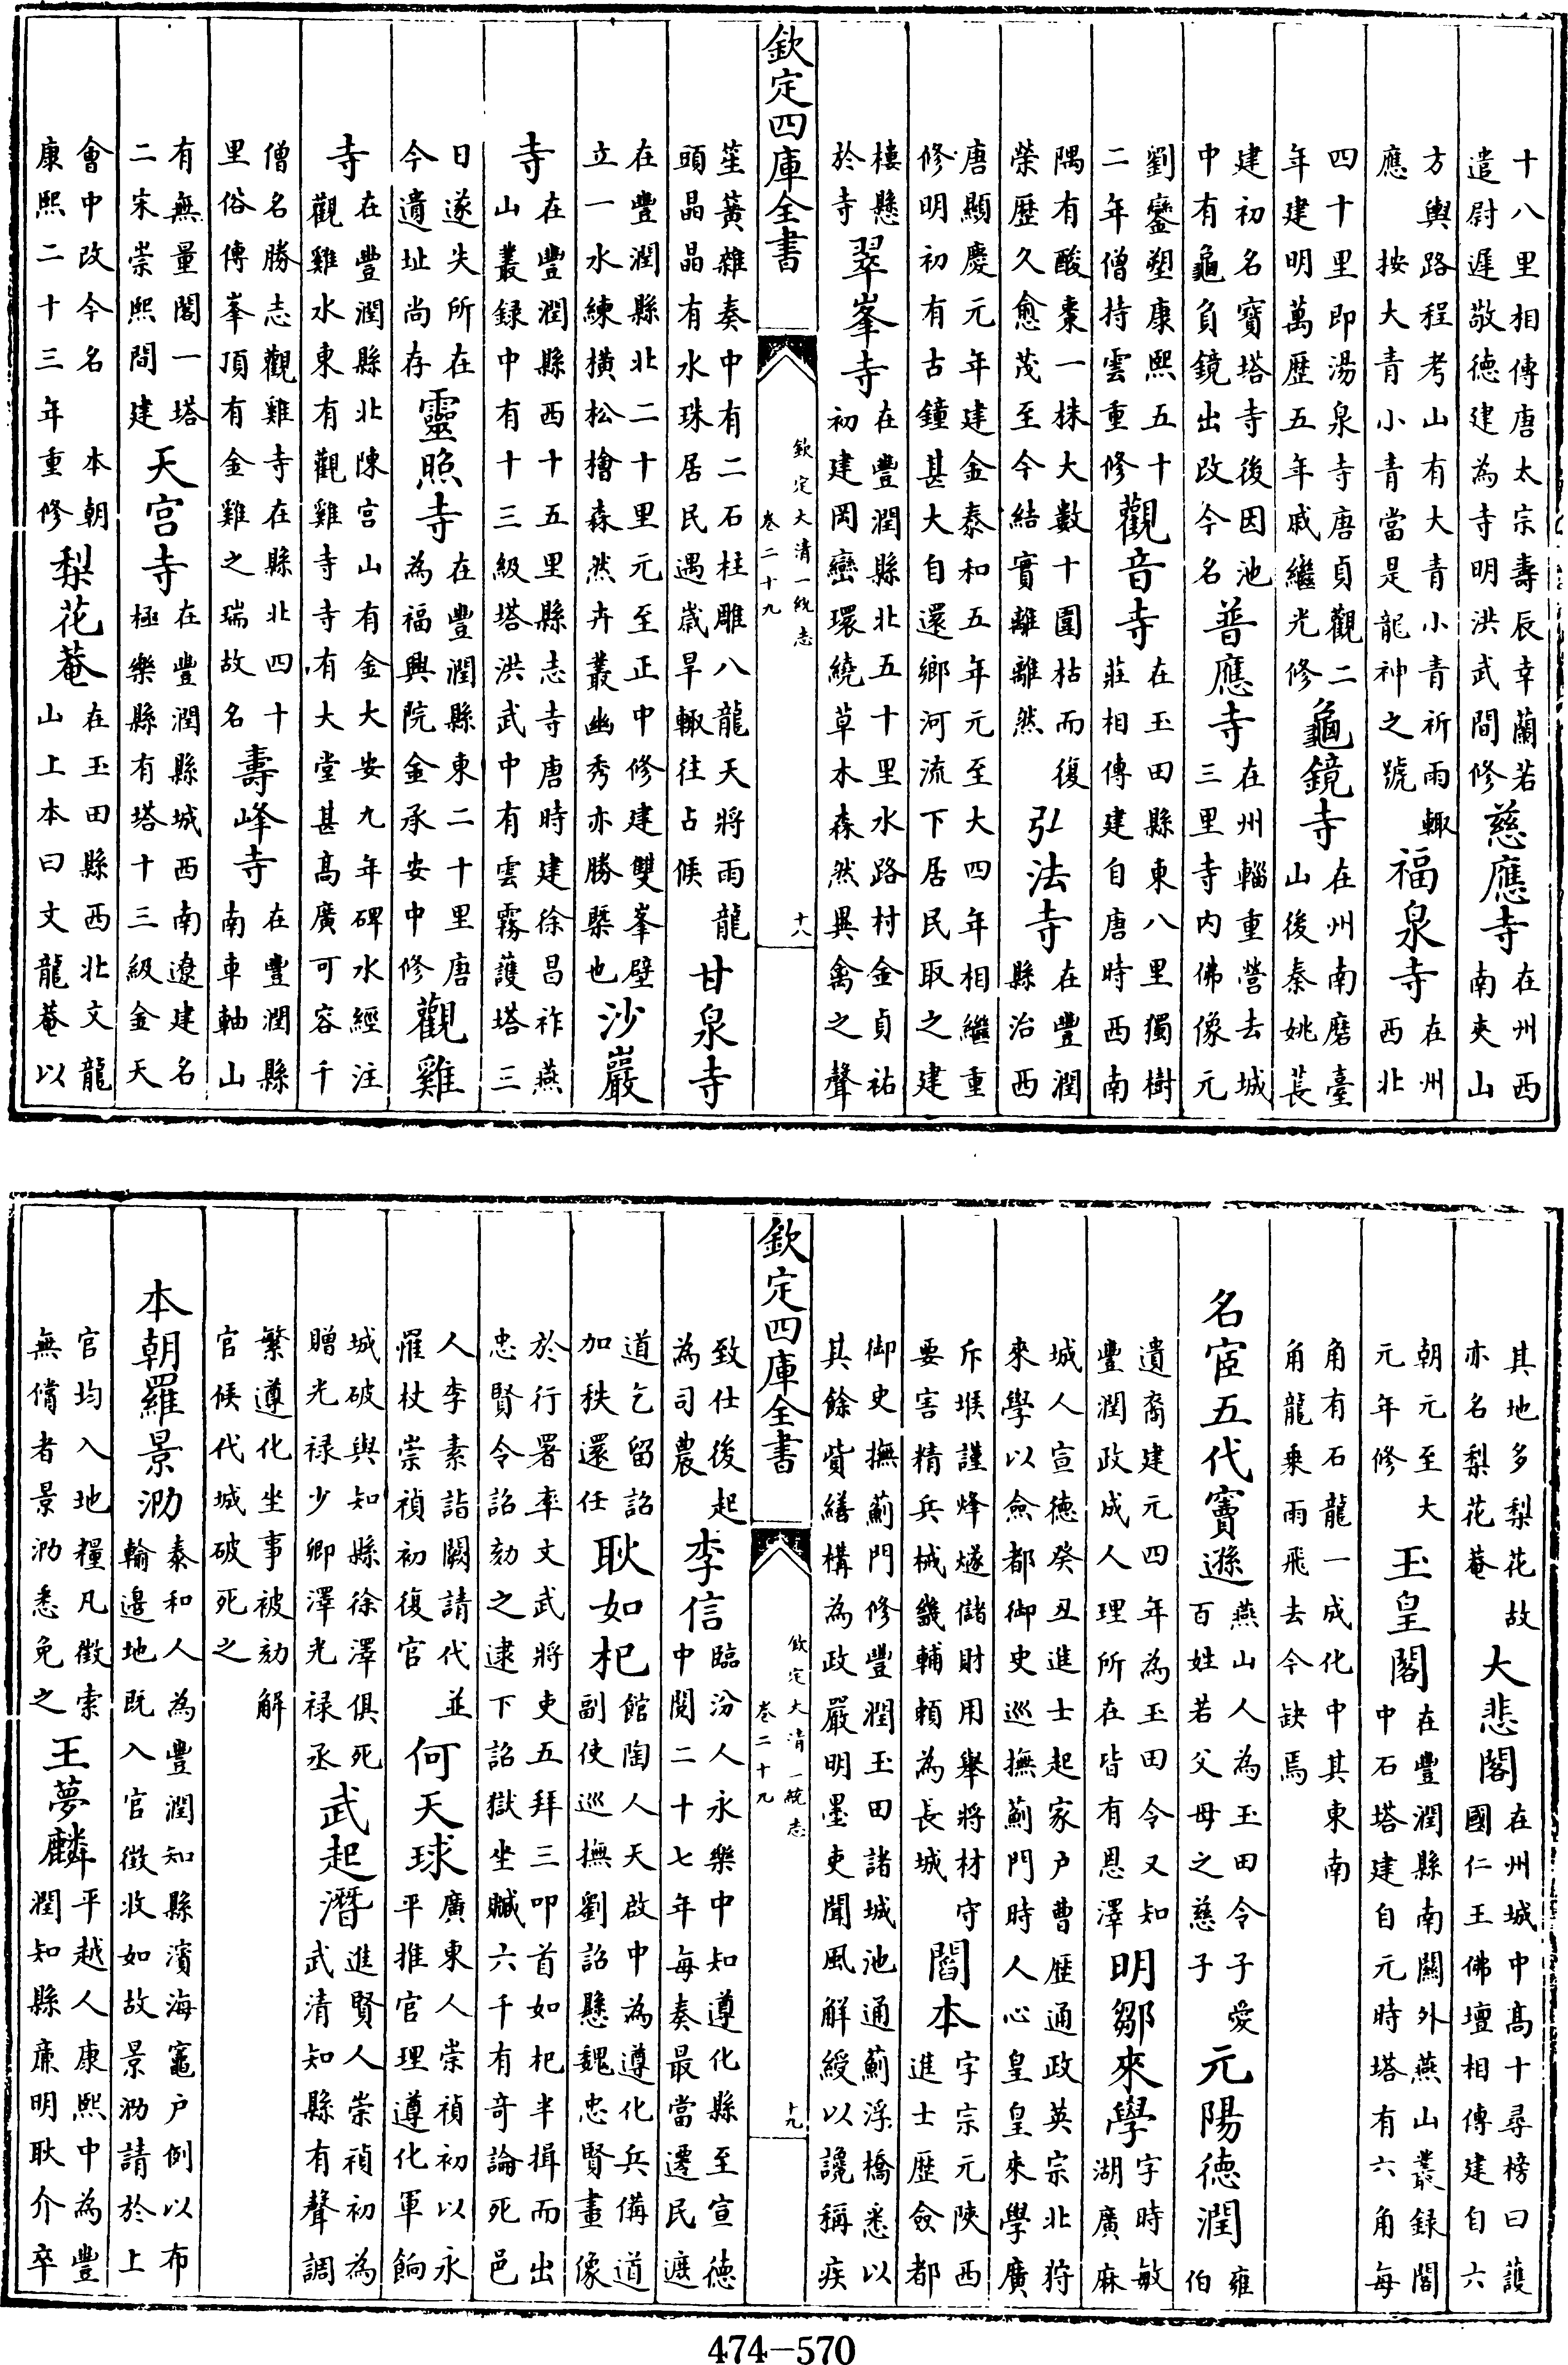 十八里相傳唐太宗壽辰幸蘭若遣尉遲敬德建為寺明洪武間修慈應寺在州西南夾山
方輿路程考山有大青小青祈雨輒應 按大青小青當是龍神之號福泉寺在州西北
四十里即湯泉寺唐貞觀二年建明萬歷五年戚繼光修龜鏡寺在州南磨臺山後秦姚萇
建初名寶塔寺後因池中有龜負鏡出改今名普應寺在州輜重營去城三里寺内佛像元
劉鑾塑康熙五十二年僧持雲重修觀音寺在玉田縣東八里獨樹莊相傳建自唐時西南
隅有酸棗一株大數十圍枯而復榮歷久愈茂至今結實離離然弘法寺在豐潤縣治西
唐顯慶元年建金泰和五年元至大四年相繼重修明初有古鐘甚大自還鄉河流下居民取之建
樓懸於寺翠峯寺在豐潤縣北五十里水路村金貞祐初建岡巒環繞草木森然異禽之聲
欽定四庫全書 欽定大清一統志 卷二十九 十八
笙簧雜奏中有二石柱雕八龍天將雨龍頭晶晶有水珠居民遇歲旱輒往占候甘泉寺
在豐潤縣北二十里元至正中修建雙峯壁立一水練橫松檜森然卉叢幽秀亦勝槩也沙巖
寺在豐潤縣西十五里縣志寺唐時建徐昌祚燕山叢録中有十三級塔洪武中有雲霧護塔三
日遂失所在今遺址尚存靈照寺在豐潤縣東二十里唐為福興院金承安中修觀雞
寺在豐潤縣北陳宫山有金大安九年碑水經注觀雞水東有觀雞寺寺有大堂甚高廣可容千
僧名勝志觀雞寺在縣北四十里俗傳峯頂有金雞之瑞故名壽峰寺在豐潤縣南車軸山
有無量閣一塔二宋崇熙間建天宫寺在豐潤縣城西南遼建名極樂縣有塔十三級金天
會中改今名 本朝康熙二十三年重修梨花菴在玉田縣西北文龍山上本曰文龍菴以
其地多梨花故亦名梨花菴大悲閣在州城中高十尋榜曰護國仁王佛壇相傳建自六
朝元至大元年修玉皇閣在豐潤縣南關外燕山叢録閣中石塔建自元時塔有六角每
角有石龍一成化中其東南角龍乘雨飛去今缺焉
名宦五代竇遜燕山人為玉田令子愛百姓若父母之慈子元陽德潤雍伯
遺裔建元四年為玉田令又知豐潤政成人理所在皆有恩澤明鄒來學字時敏湖廣麻
城人宣德癸丑進士起家户曹歷通政英宗北狩來學以僉都御史巡撫薊門時人心皇皇來學廣
斥堠謹烽燧儲財用舉將材守要害精兵械畿輔賴為長城閻本字宗元陜西進士歷僉都
御史撫薊門修豐潤玉田諸城池通薊浮橋悉以其餘貲繕構為政嚴明墨吏聞風解綬以讒稱疾
欽定四庫全書 欽定大清一統志 卷二十九 十九
致仕後起為司農李信臨汾人永樂中知遵化縣至宣德中閱二十七年每奏最當遷民遮
道乞留詔加秩還任耿如杞館陶人天啟中為遵化兵備道副使巡撫劉詔懸魏忠賢畫像
於行署率文武將吏五拜三叩首如杞半揖而出忠賢令詔劾之逮下詔獄坐贓六千有奇論死邑
人李素詣闕請代並罹杖崇禎初復官何天球廣東人崇禎初以永平推官理遵化軍餉
城破與知縣徐澤俱死贈光禄少卿澤光禄丞武起潛進賢人崇禎初為武清知縣有聲調
繁遵化坐事被劾解官候代城破死之
本朝羅景泐泰和人為豐潤知縣濱海竈户例以布輸邉地既入官徴收如故景泐請於上
官均入地糧凡徴索無償者景泐悉免之王夢麟平越人康熙中為豐潤知縣廉明耿介卒
474—570